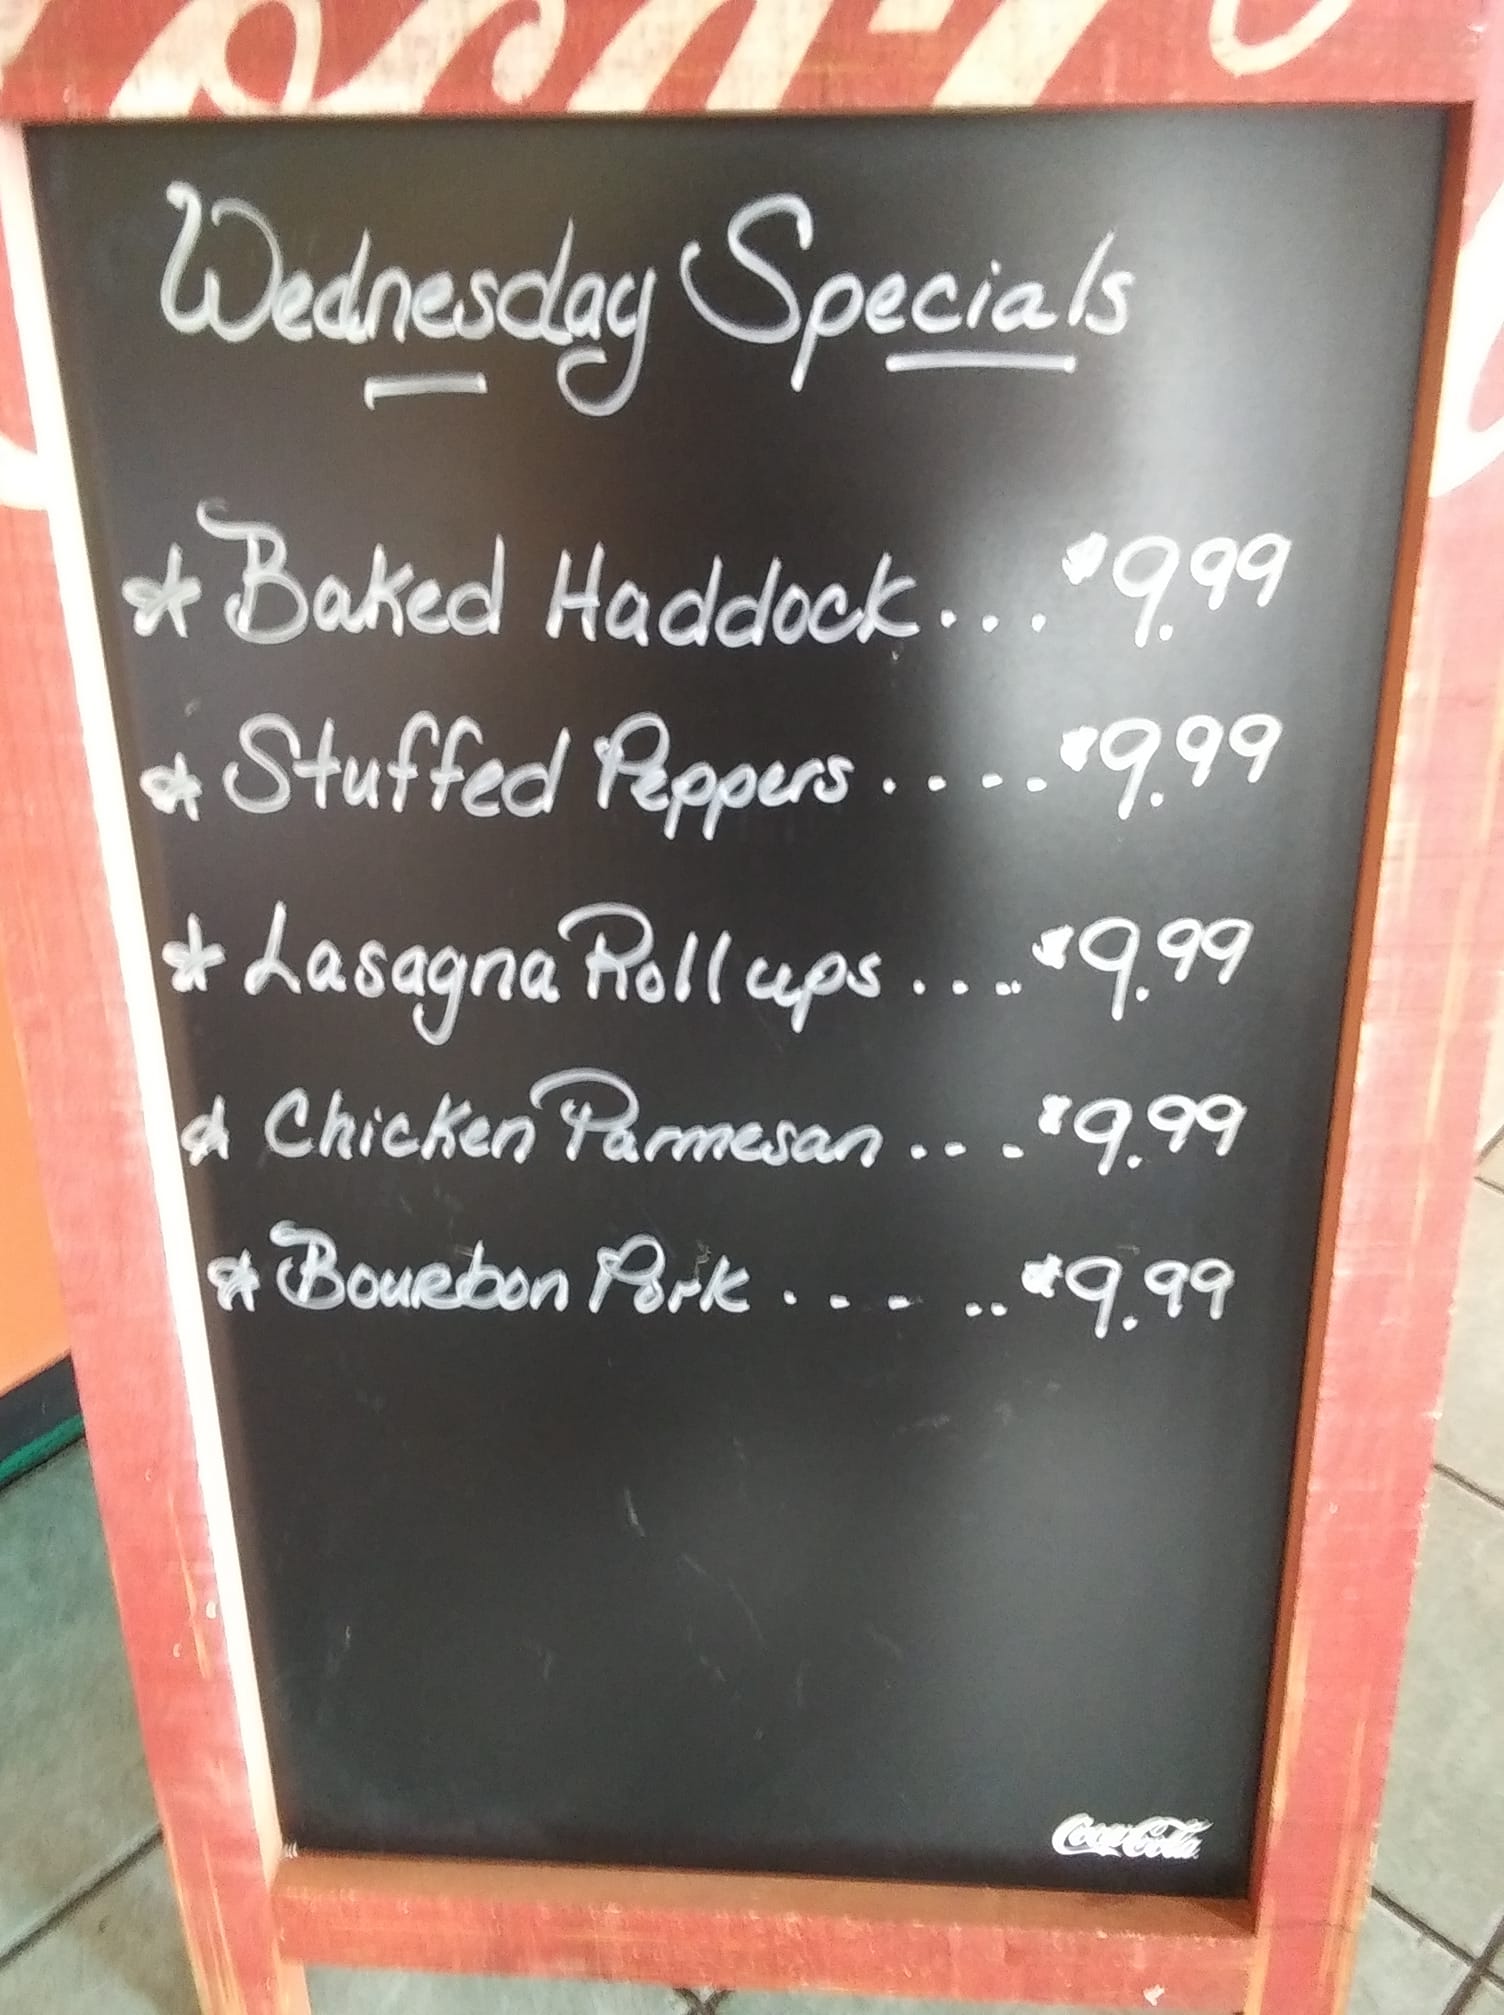 Wednesday Specials
* Baked Haddock... $9.99
* Stuffed Peppers.... $9.99
* Lasagna Roll ups.... $9.99
* Chicken Parmesan... $9.99
* Bourbon Pork..... $9.99
Coca-Cola